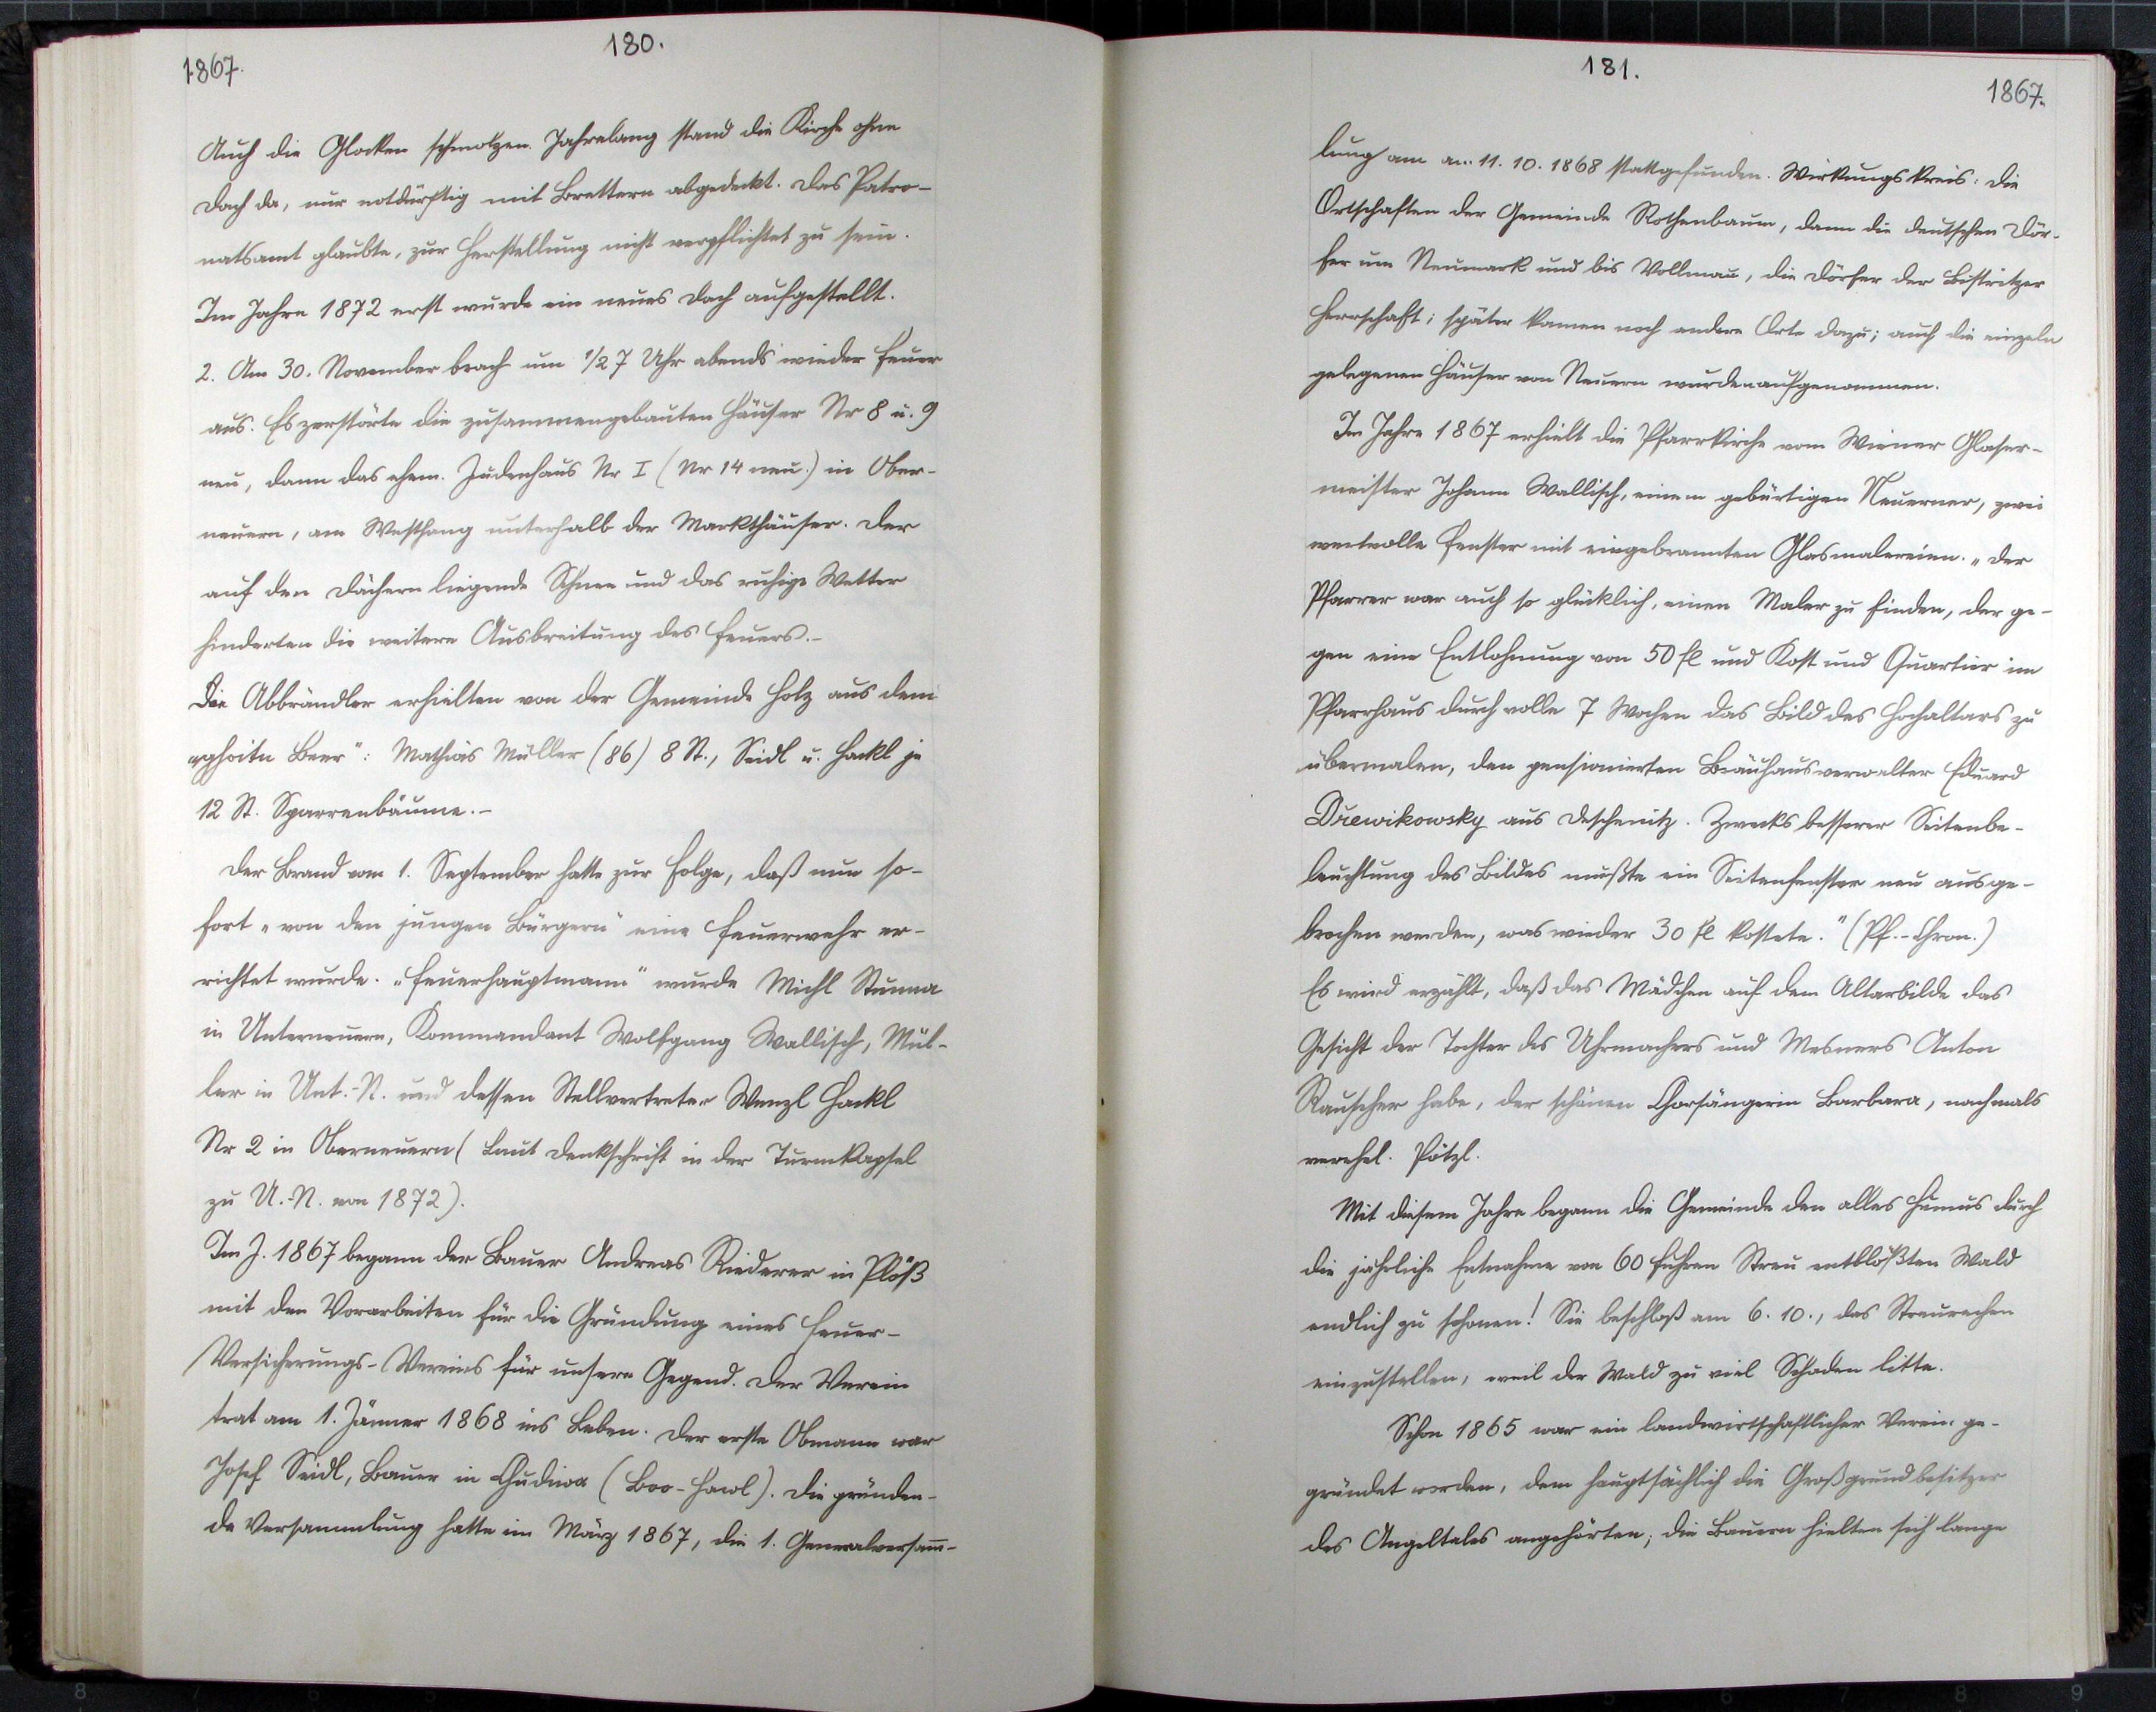 180.
1867.
Auch die Glocken schmolzen. Jahrelang stand die Kirche ohne
Dach da, nur notdürftig mit Brettern abgedeckt. Das Patro-
natsamt glaubte, zur Herstellung nicht verpflichtet zu sein.
Im Jahre 1872 erst wurde ein neues Dach aufgestellt.
2. Am 30. November brach um 1/2 7 Uhr abends wieder Feuer
aus. Es zerstörte die zusammengebauten Häuser Nr 8 u. 9
neu, dann das ehem. Judenhaus Nr I (Nr 14 neu.) in Ober-
neuern, am Westhang unterhalb der Markthäuser. Der
auf den Dächern liegende Schnee und das ruhige Wetter
hinderten die weitere Ausbreitung des Feuers.-
Die Abbrändler erhielten von der Gemeinde Holz aus dem
Mathias Müller (86) 8 St., Seidl u. Hackl je
12 St. Sparrenbäume.-
Der Brand vom 1. September hatte zur Folge, daß nun so-
fort „von den jungen Bürgern" eine Feuerwehr er-
richtet wurde. „Feuerhauptmann" wurde Michl Stunna
in Unterneuern, Kommandant Wolfgang Wallisch, Mül-
ler in Unt.-N. und dessen Stellvertreter Wenzl Hackl
Nr 2 in Oberneuern (Laut Denkschrift in der Turmkapsel
zu U.-N. von 1872).
Im J. 1867 begann der Bauer Andreas Riederer in Plöß
mit den Vorarbeiten für die Gründung eines Feuer-
Versicherungs-Vereins für unsere Gegend. Der Verein
trat am 1. Jänner 1868 ins Leben. Der erste Obmann war
Josef Seidl, Bauer in Chudiwa (Boo-Hawl). Die gründen-
de Versammlung hatte im März 1867, die 1. Generalversam̅-
181.
1867.
lung am am 11. 10. 1868 stattgefunden. Wirkungskreis: die
Ortschaften der Gemeinde Rothenbaum, dann die deutschen Dör-
fer um Neumark und bis Vollmau, die Dörfer der Bistritzer
Herrschaft; später kamen noch andere Orte dazu; auch die einzeln
gelegenen Häuser von Neuern wurden aufgenommen.
Im Jahre 1867 erhielt die Pfarrkirche vom Wiener Glaser-
meister Johann Wallisch, einem gebürtigen Neuerner, zwei
wertvolle Fenster mit eingebrannten Glasmalereien. „Der
Pfarrer war auch so glücklich, einen Maler zu finden, der ge-
gen eine Entlohnung von 50 fl und Kost und Quartier im
Pfarrhaus durch volle 7 Wochen das Bild des Hochaltars zu
übermalen, den pensionierten Bräuhausverwalter Eduard
Dřewikowsky aus Deschenitz. Zwecks besserer Seitenbe-
leuchtung des Bildes mußte ein Seitenfenster neu ausge-
brochen werden, was wieder 30 fl kostete." (Pf.-Chron.)
Es wird erzählt, daß das Mädchen auf dem Altarbilde das
Gesicht der Tochter des Uhrmachers und Mesners Anton
Rauscher habe, der schönen Chorsängerin Barbara, nachmals
verehel. Pötzl.
Mit diesem Jahre begann die Gemeinde den alles Humus durch
die jährliche Entnahme von 60 Fuhren Streu entblößten Wald
endlich zu schonen! Sie beschloß am 6. 10., das Streurechen
einzustellen, weil der Wald zu viel Schaden litte.
Schon 1865 war ein landwirtschaftlicher Verein ge-
gründet worden, dem hauptsächlich die Großgrundbesitzer
des Angeltales angehörten; die Bauern hielten sich lange